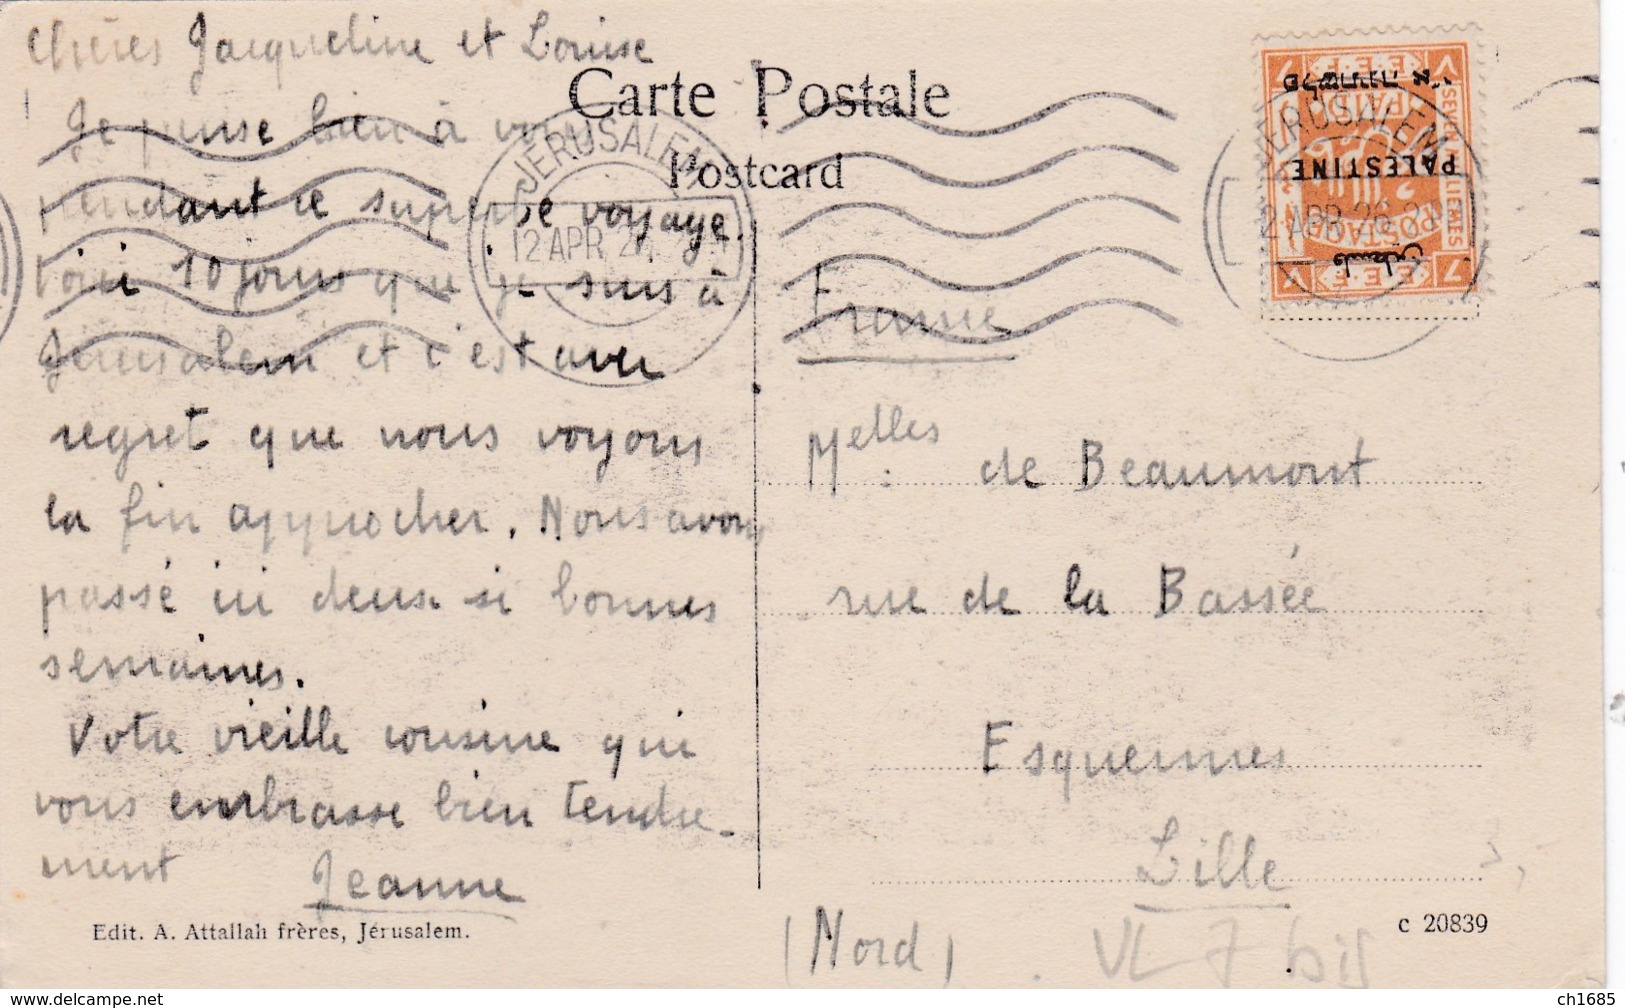 Chères Jacqueline et Louise
Je pense bien à vous
pendant ce superbe voyage.
Voici 10 jours que je suis à
Jérusalem et c'est avec
regret que nous voyons
la fin approcher. Nous avons
passé ici deux si bonnes
semaines.
Votre vieille cousine qui
vous embrasse bien tendre-
ment Jeanne
Edit. A. Attallah frères, Jérusalem.
Carte Postale
Postcard
JERUSALEM
12 APR 26
JERUSALEM
12 APR 26
PALESTINE
פלשתינה א״י
فلسطين
E.E.F.
PAID
POSTAGE
7
France
Melles de Beaumont
rue de la Bassée
Esquermes
Lille
(Nord)
VL 7 bis
C 20839
ch1685